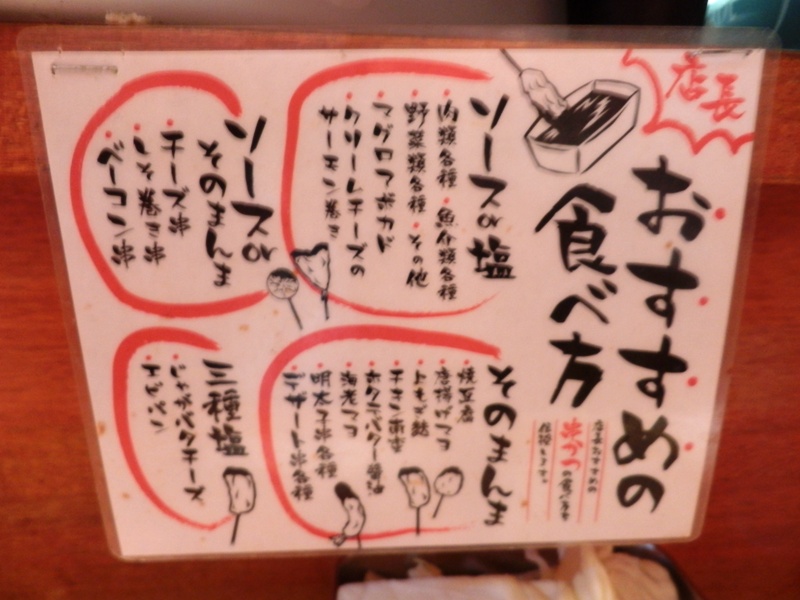 店長
おすすめの
食べ方
店長おすすめの
串かつの食べ方を
伝授します。
ソースor塩
肉類各種・魚介類各種
野菜類各種・その他
マグロアボカド
クリームチーズの
サーモン巻き
ソースor
そのまんま
チーズ串
しそ巻き串
ベーコン串
そのまんま
焼豆腐
唐揚げマヨ
よもぎ麩
チキン南蛮
ホタテバター醤油
海老マヨ
明太子串各種
デザート串各種
三種塩
じゃがバタチーズ
エビパン